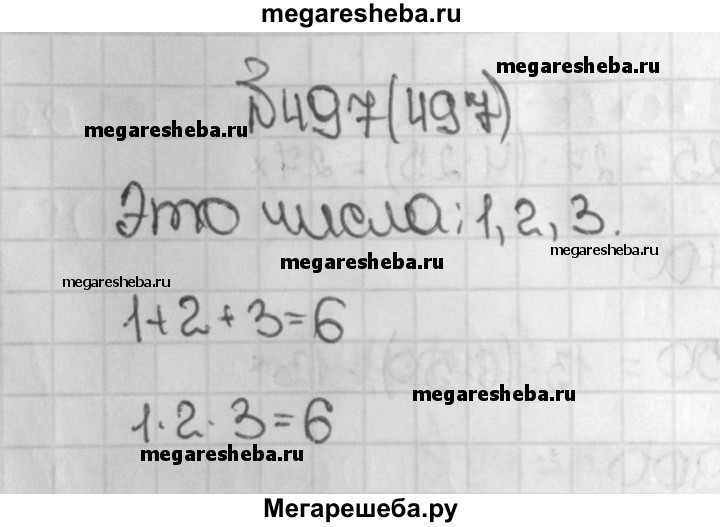 megaresheba.ru
megaresheba.ru
№497(497)
megaresheba.ru
Это числа: 1, 2, 3.
megaresheba.ru
megaresheba.ru
megaresheba.ru
1+2+3=6
megaresheba.ru
1·2·3=6
megaresheba.ru
Мегарешеба.ру